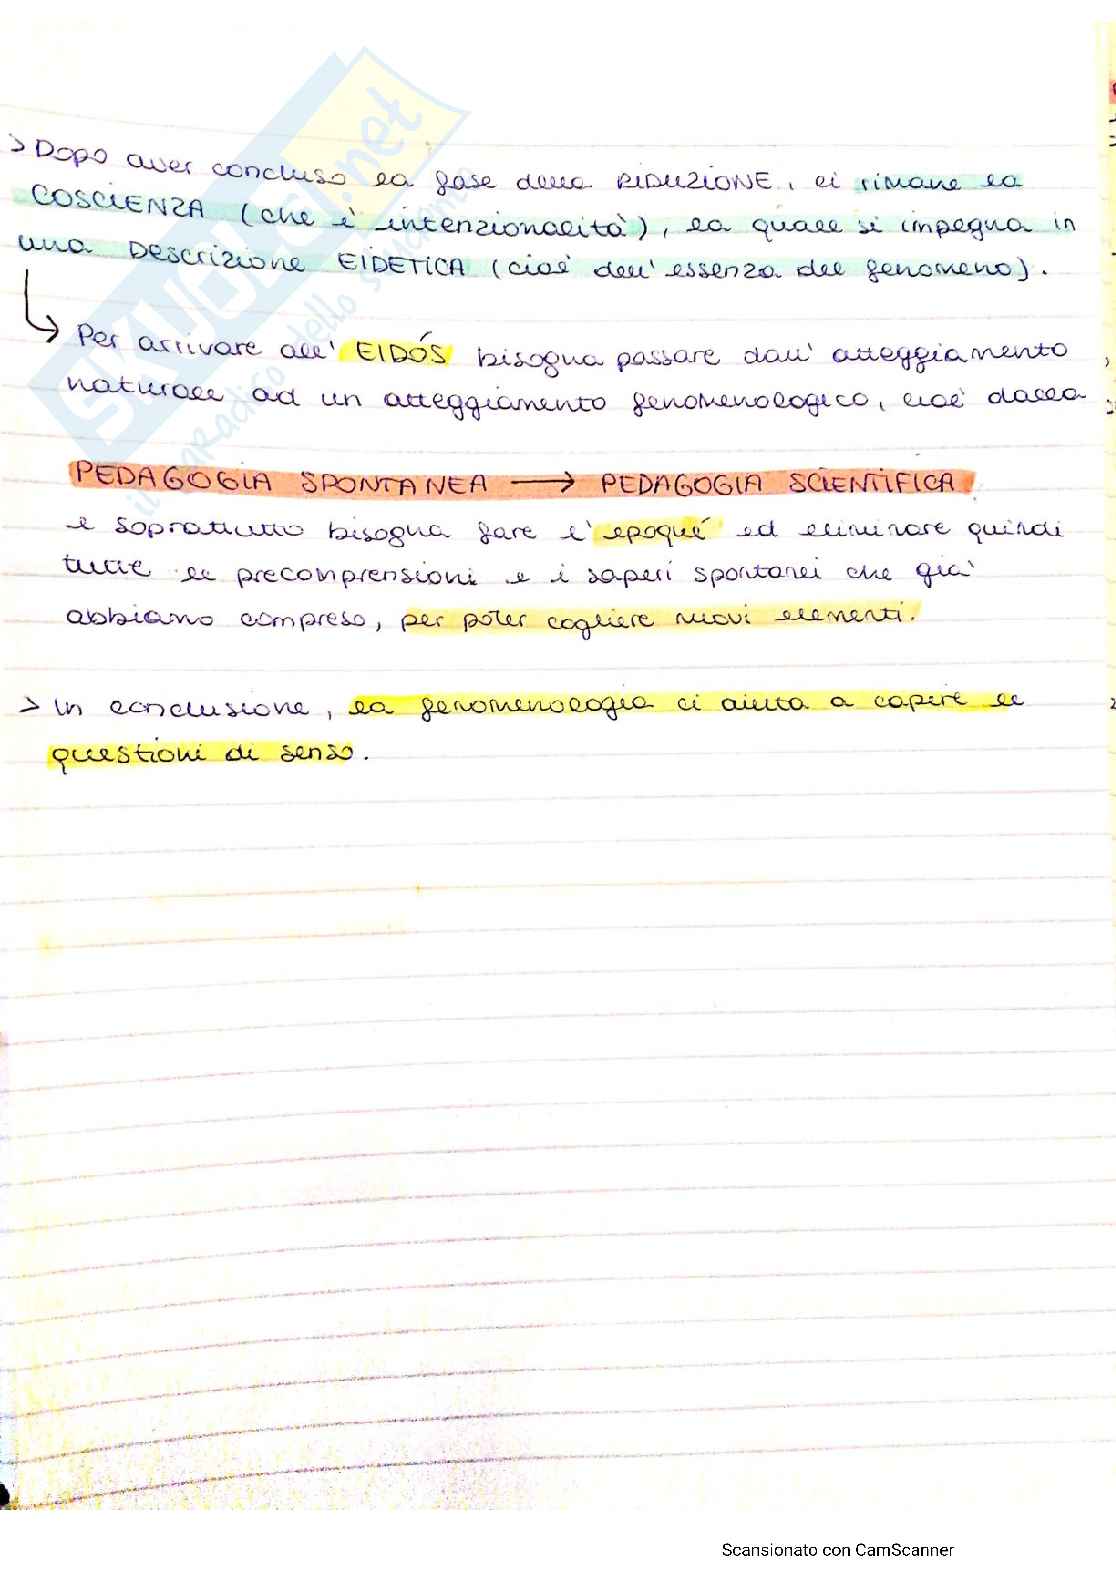 > Dopo aver concluso la fase della RIDUZIONE, ci rimane la
COSCIENZA (che è intenzionalità), la quale si impegna in
una Descrizione EIDETICA (cioè dell'essenza del fenomeno).
Per arrivare all' EIDÓS bisogna passare dall' atteggiamento
naturale ad un atteggiamento fenomenologico, cioè dalla
PEDAGOGIA SPONTANEA → PEDAGOGIA SCIENTIFICA
e soprattutto bisogna fare l'epoqué ed eliminare quindi
tutte le precomprensioni e i saperi spontanei che già
abbiamo compreso, per poter cogliere nuovi elementi.
> In conclusione, la fenomenologia ci aiuta a capire le
questioni di senso.
SKUOLA.net
il paradiso dello studente
Scansionato con CamScanner